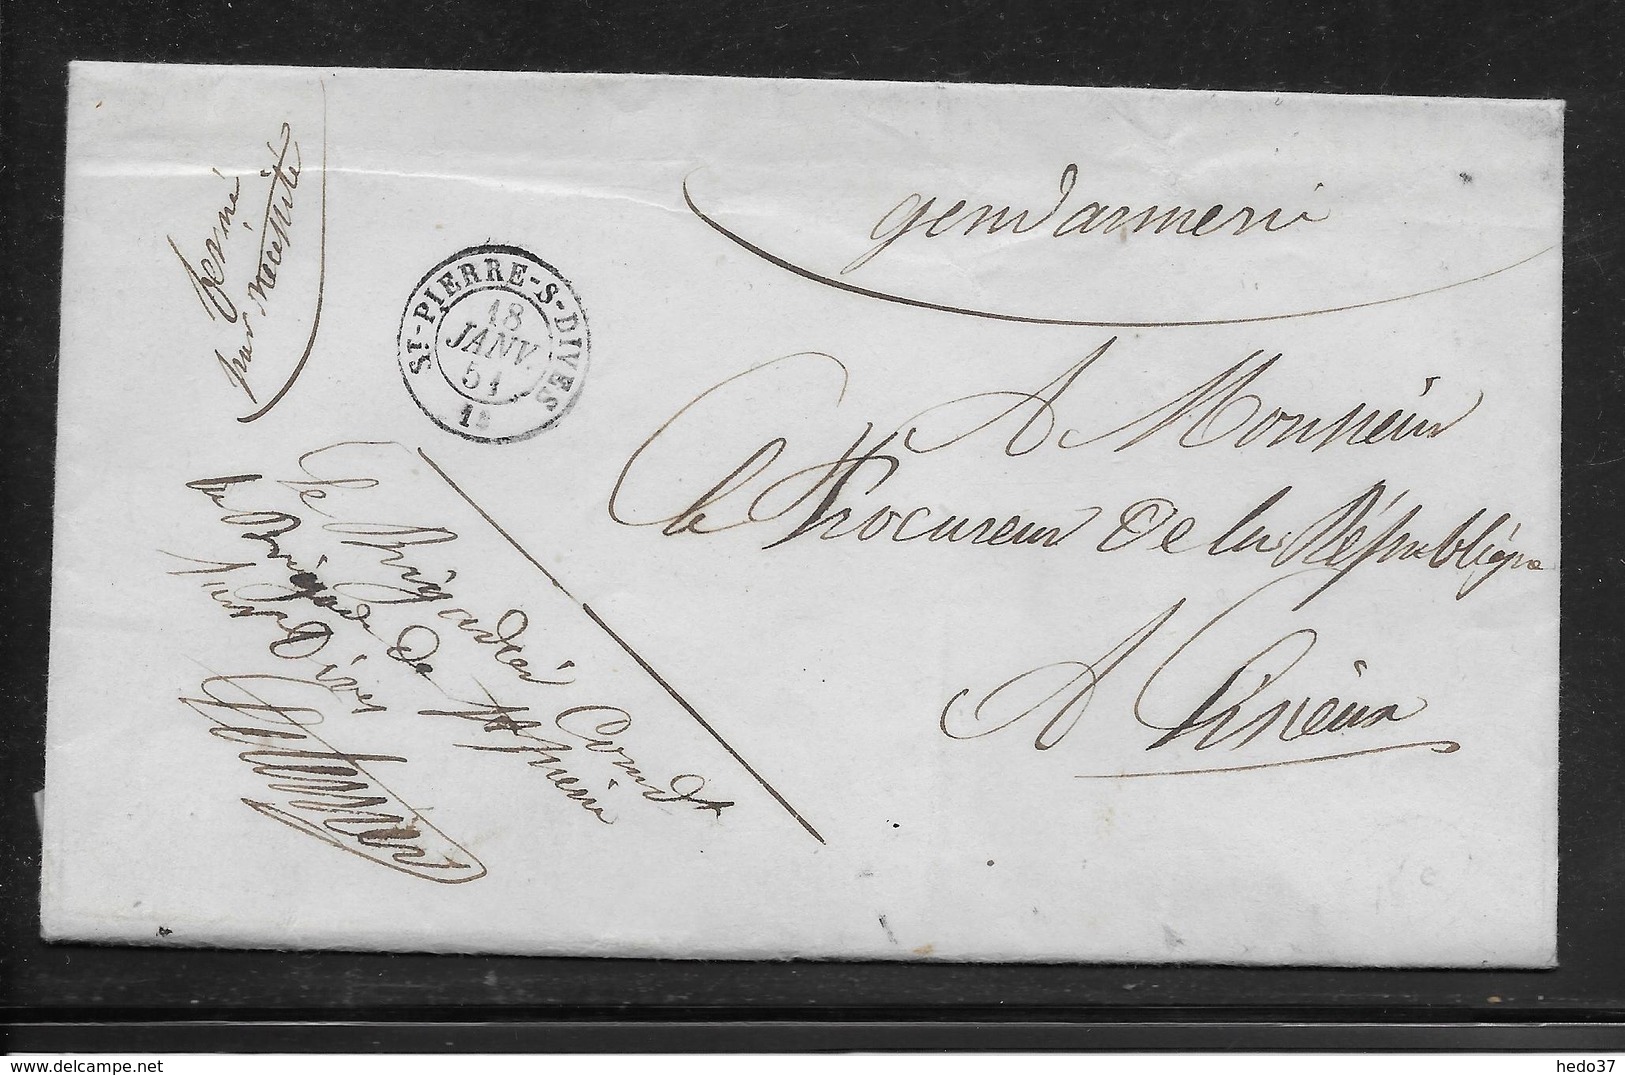 fermé
par nécessité
gendarmerie
ST-PIERRE-S-DIVES
18
JANV.
51
A Monsieur
le Procureur de la République
A Lisieux
Le Brigadier Comdt
la Brigade de St Pierre
sur Dives
hedo37